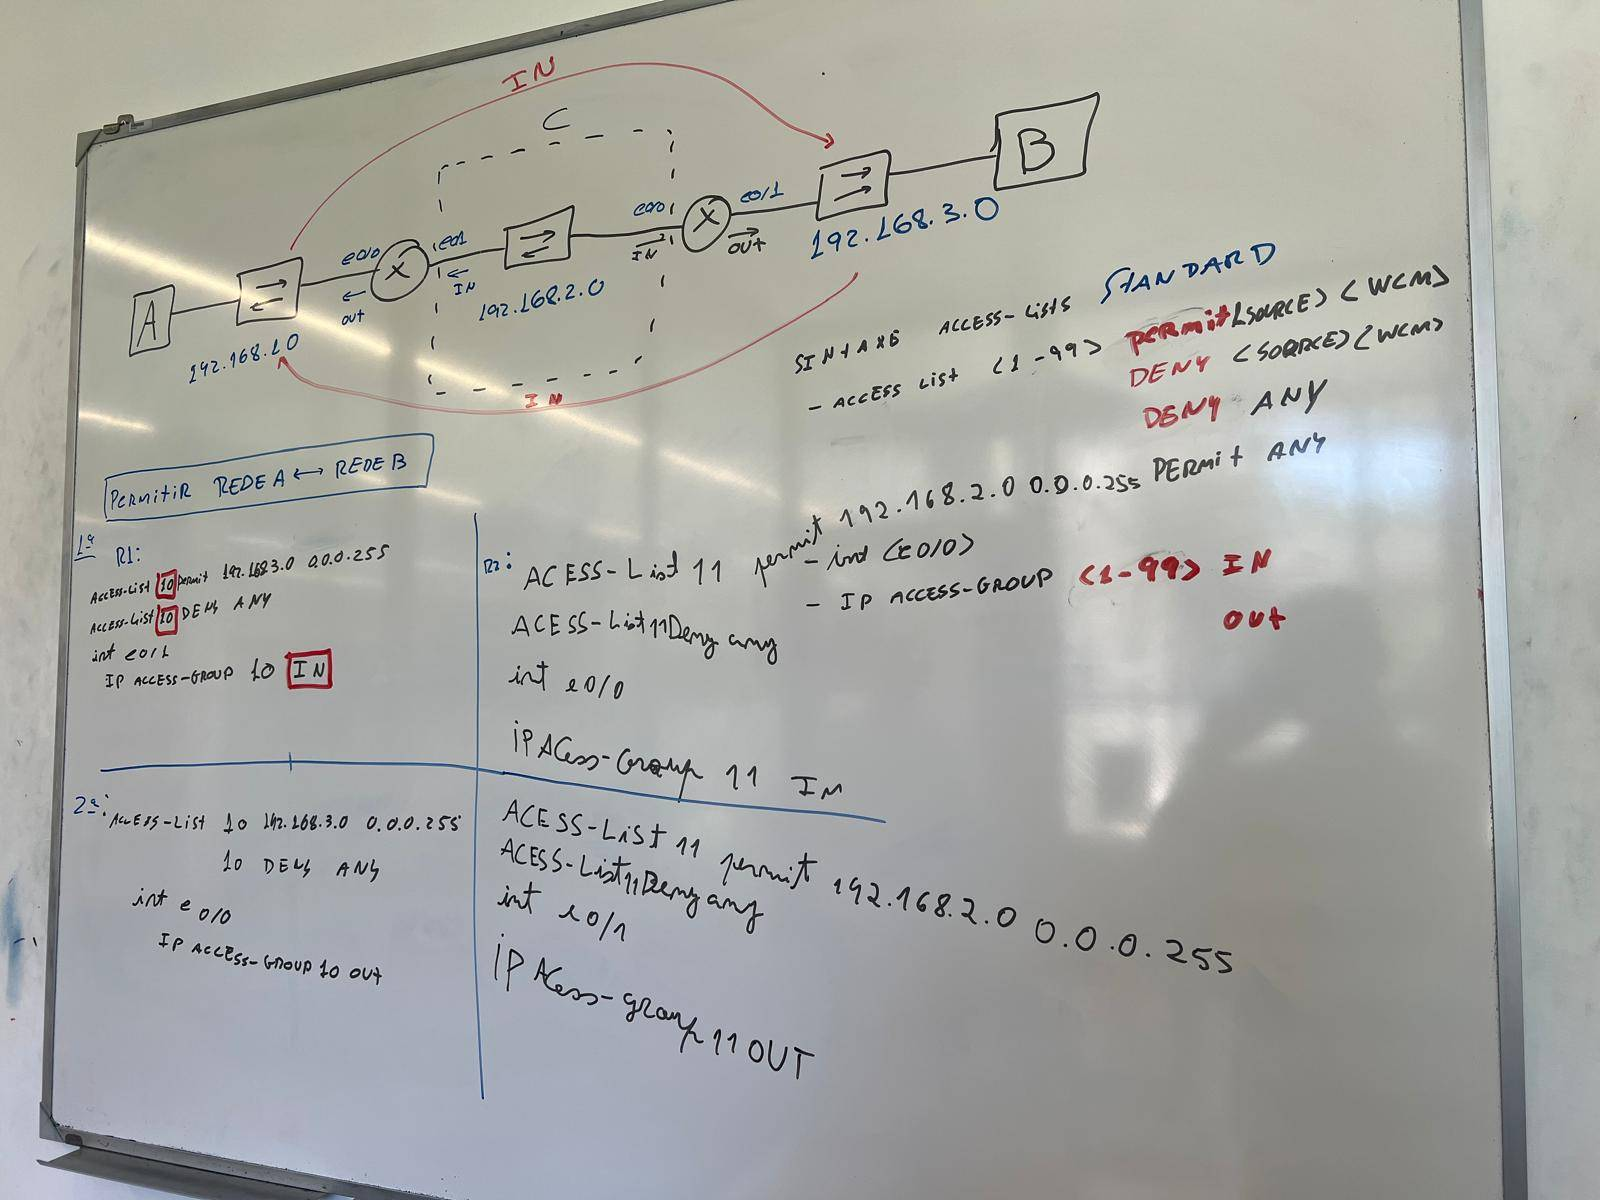 IN
C
B
e0/0
e0/1
e0/0
e0/1
A
X
X
OUT
IN
IN
OUT
192.168.1.0
192.168.2.0
192.168.3.0
IN
SINTAXE ACCESS-LISTS STANDARD
- ACCESS LIST <1-99> PERMIT <SOURCE> <WCM>
DENY <SOURCE> <WCM>
DENY ANY
PERMIT ANY
- int <e0/0>
- IP ACCESS-GROUP <1-99> IN
OUT
PERMITIR REDE A ↔ REDE B
1ª
R1:
ACCESS-LIST 10 PERMIT 192.168.3.0 0.0.0.255
ACCESS-LIST 10 DENY ANY
int e0/1
IP ACCESS-GROUP 10 IN
R2:
ACESS-List 11 permit 192.168.2.0 0.0.0.255
ACESS-List 11 Deny any
int e0/0
iP ACess-Group 11 In
2ª:
ACCESS-LIST 10 192.168.3.0 0.0.0.255
10 DENY ANY
int e 0/0
IP ACCESS-GROUP 10 OUT
ACESS-LiSt 11 permit 192.168.2.0 0.0.0.255
ACESS-List 11 Deny any
int e0/1
iP ACess-group 11 OUT